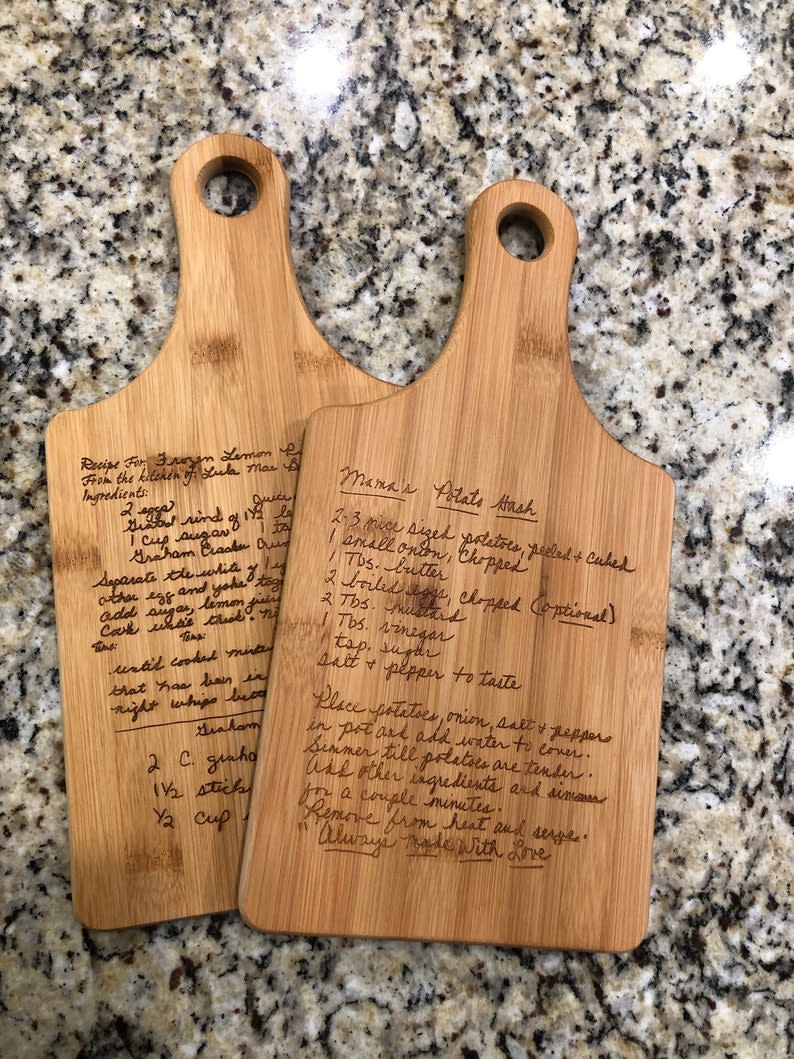 Recipe For: Frozen Lemon
From the kitchen of: Lula Mae
Ingredients:
2 eggs
Juice
Grated rind of 1½
1 cup sugar
Graham Cracker
Separate the white of 1
other egg and yoke
add sugar, lemon
Cook until thick.
Time:
Temp:
until cooked
that has been in
right whips
Graham
2 C.
1½ stick
½ cup
Mama's Potato Hash
2-3 nice sized potatoes, peeled + cubed
1 small onion, chopped
1 Tbs. butter
2 boiled eggs, chopped (optional)
2 Tbs. mustard
1 Tbs. vinegar
1 tsp. sugar
Salt + pepper to taste
Place potatoes, onion, salt + pepper
in pot and add water to cover.
Simmer till potatoes are tender.
Add other ingredients and simmer
for a couple minutes.
Remove from heat and serve.
"Always made with Love